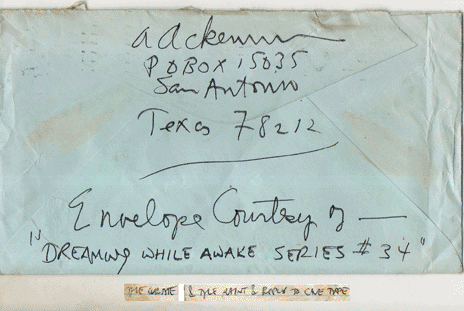 a ackerman
P O BOX 15035
San Antonio
Texas 78212
Envelope Courtesy of —
"DREAMING WHILE AWAKE SERIES # 34"
& TYPE & TO ONE TYPE